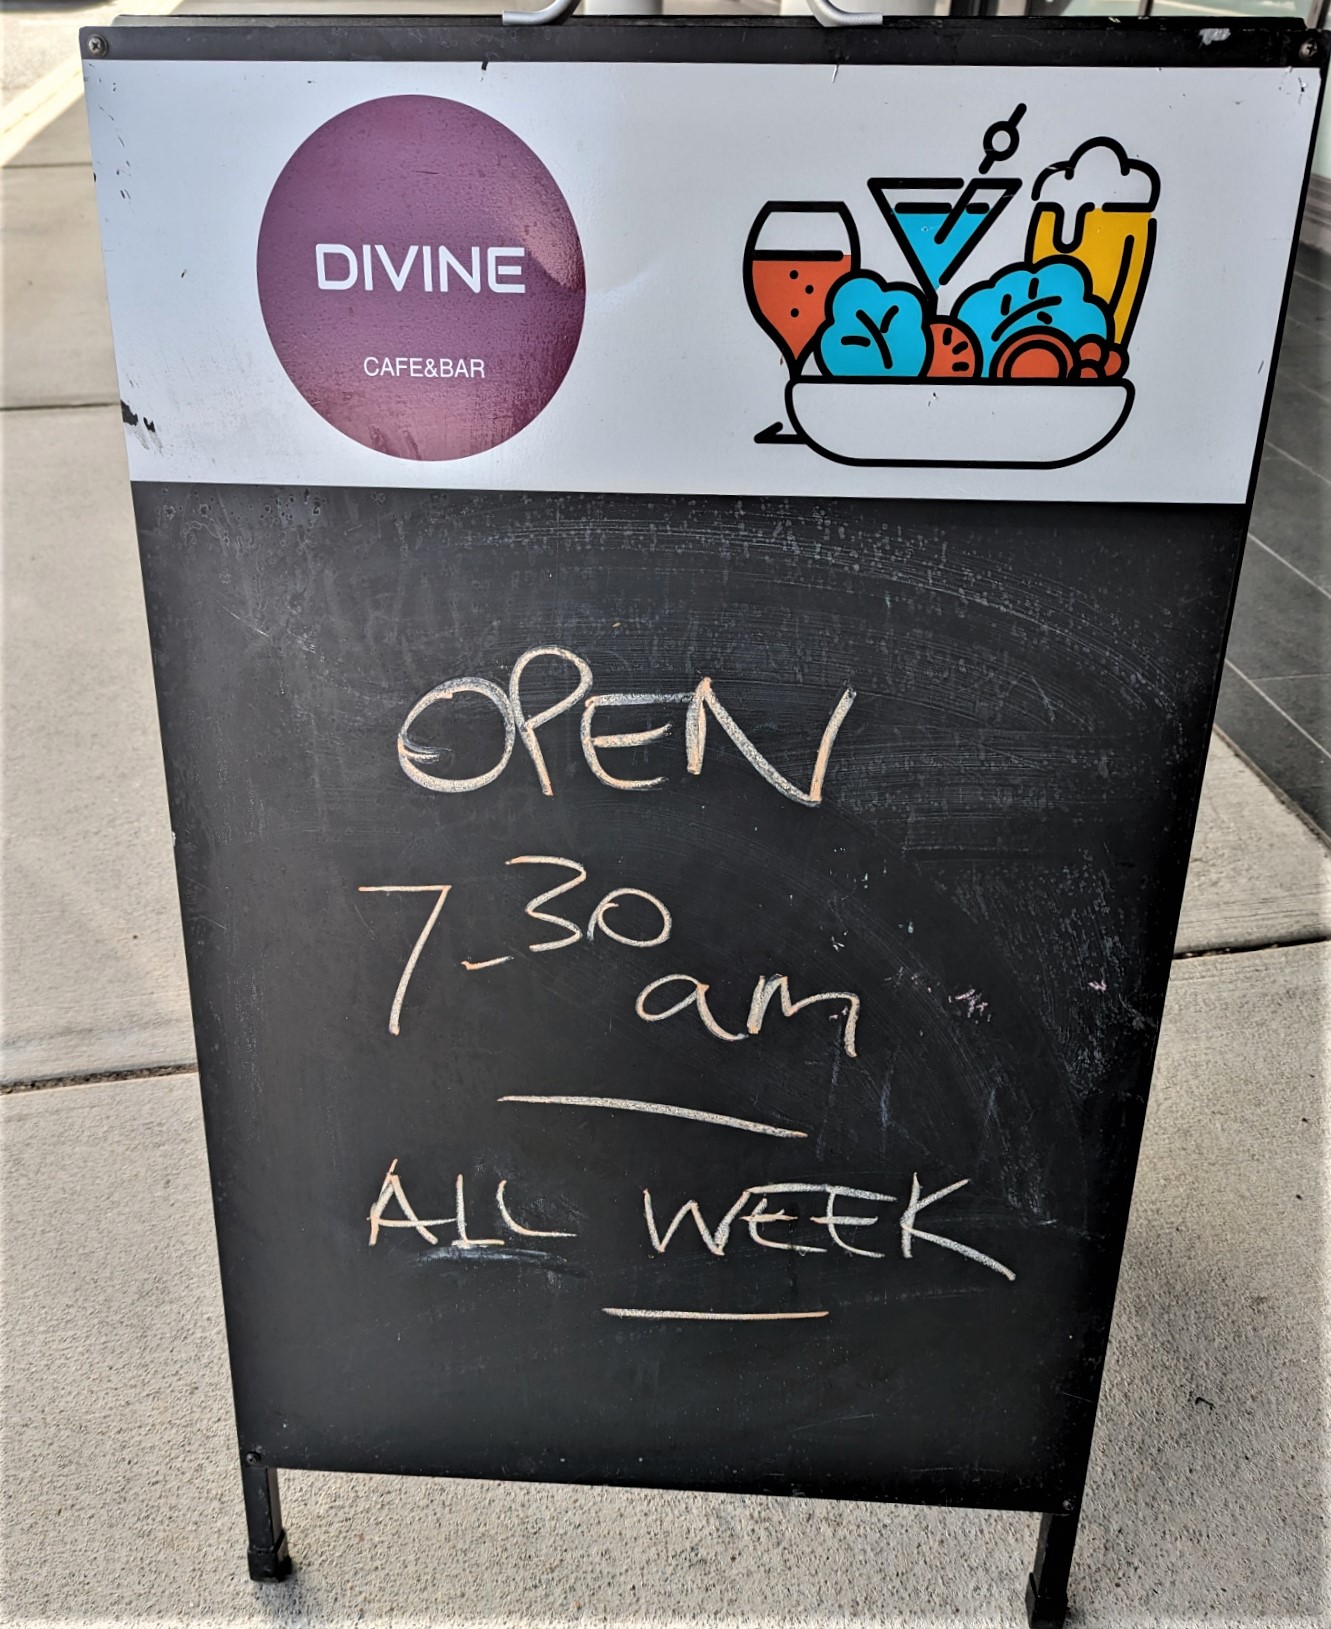 DIVINE
CAFE&BAR
OPEN
7-30
am
ALL WEEK